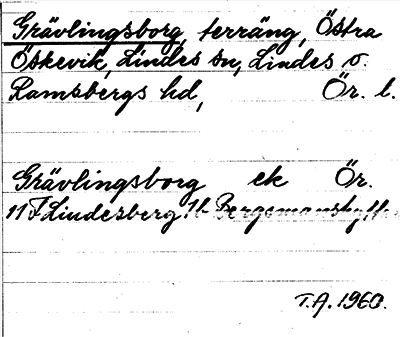 Grävlingsborg, terräng, Östra
Öskevik, Lindes sn, Lindes o.
Ramsbergs hd, Ör. l.
Grävlingsborg ek Ör.
11 F Lindesberg
T.A. 1960.